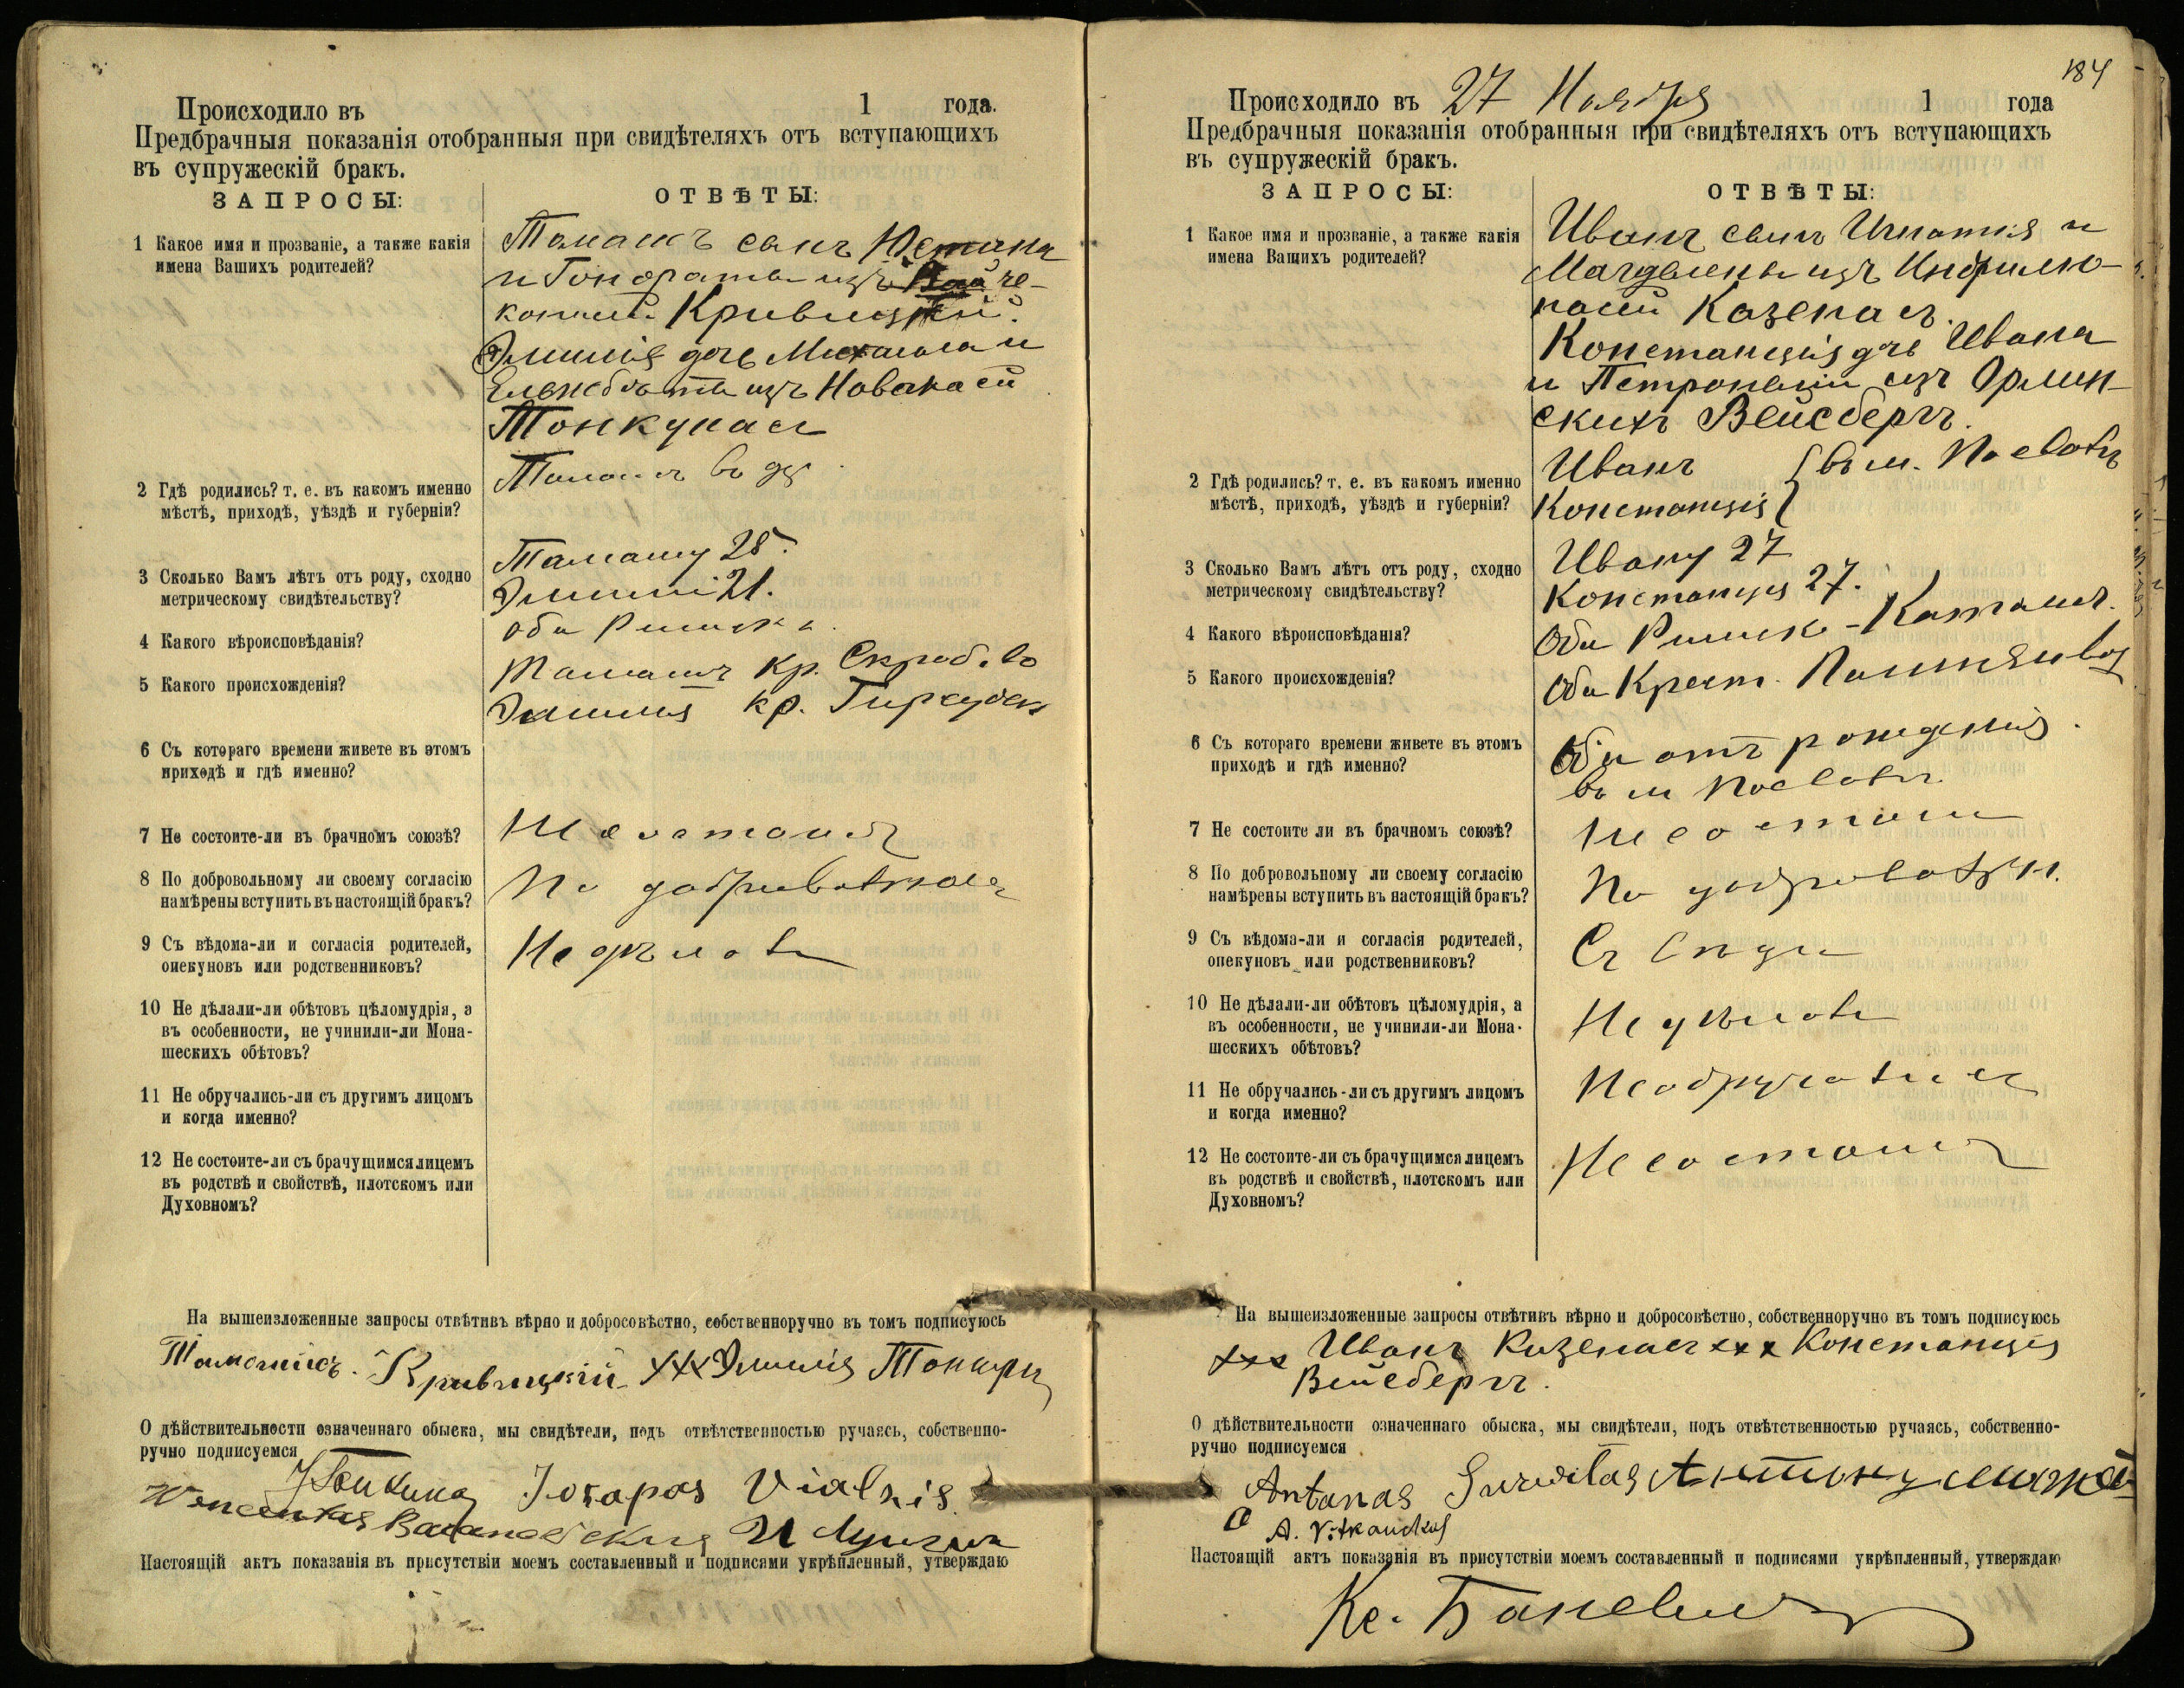 Происходило въ 1 года.
Предбрачныя показанія отобранныя при свидѣтеляхъ отъ вступающихъ
въ супружескій бракъ.
ЗАПРОСЫ:
ОТВѢТЫ:
1 Какое имя и прозваніе, а также какія
имена Вашихъ родителей?
Томашъ сынъ Юстина
и Гонораты изъ
Кривицкій.
Эмилія дочь Михаила и
Елисабеты изъ
Тонкунасъ
2 Гдѣ родились? т. е. въ какомъ именно
мѣстѣ, приходѣ, уѣздѣ и губерніи?
Томашъ въ
3 Сколько Вамъ лѣтъ отъ роду, сходно
метрическому свидѣтельству?
Томашу 28.
Эмиліи 21.
4 Какого вѣроисповѣданія?
Оба Римск
5 Какого происхожденія?
Томашъ кр.
Эмилія кр.
6 Съ котораго времени живете въ этомъ
приходѣ и гдѣ именно?
7 Не состоите-ли въ брачномъ союзѣ?
Не состоимъ
8 По добровольному ли своему согласію
намѣрены вступить въ настоящій бракъ?
По добровольному
9 Съ вѣдома-ли и согласія родителей,
опекуновъ или родственниковъ?
Не дѣлали
10 Не дѣлали-ли обѣтовъ цѣломудрія, а
въ особенности, не учинили-ли Мона-
шескихъ обѣтовъ?
11 Не обручались-ли съ другимъ лицомъ
и когда именно?
12 Не состоите-ли съ брачущимся лицемъ
въ родствѣ и свойствѣ, плотскомъ или
Духовномъ?
На вышеизложенные запросы отвѣтивъ вѣрно и добросовѣстно, собственноручно въ томъ подписуюсь
Кривицкій xxx Эмилія
О дѣйствительности означеннаго обыска, мы свидѣтели, подъ отвѣтственностью ручаясь, собственно-
ручно подписуемся
Juozapas
Настоящій актъ показанія въ присутствіи моемъ составленный и подписями укрѣпленный, утверждаю
184
Происходило въ 27 Ноября 1 года
Предбрачныя показанія отобранныя при свидѣтеляхъ отъ вступающихъ
въ супружескій бракъ.
ЗАПРОСЫ:
ОТВѢТЫ:
1 Какое имя и прозваніе, а также какія
имена Вашихъ родителей?
Иванъ сынъ Игнатія и
Магдалены изъ
Казенасъ.
Констанція дочь Ивана
и Петронеліи изъ Орлин-
скихъ Вейсбергъ.
2 Гдѣ родились? т. е. въ какомъ именно
мѣстѣ, приходѣ, уѣздѣ и губерніи?
Иванъ
Констанція } въ м.
3 Сколько Вамъ лѣтъ отъ роду, сходно
метрическому свидѣтельству?
Ивану 27
Констанціи 27.
4 Какого вѣроисповѣданія?
Оба Римско-Катол.
5 Какого происхожденія?
Оба Крест.
6 Съ котораго времени живете въ этомъ
приходѣ и гдѣ именно?
Оба отъ рожденія
въ м
7 Не состоите ли въ брачномъ союзѣ?
Не состоимъ
8 По добровольному ли своему согласію
намѣрены вступить въ настоящій бракъ?
По добровольн.
9 Съ вѣдома-ли и согласія родителей,
опекуновъ или родственниковъ?
Съ вѣдома
10 Не дѣлали-ли обѣтовъ цѣломудрія, а
въ особенности, не учинили-ли Мона-
шескихъ обѣтовъ?
Не дѣлали
11 Не обручались-ли съ другимъ лицомъ
и когда именно?
Не обручались
12 Не состоите-ли съ брачущимся лицемъ
въ родствѣ и свойствѣ, плотскомъ или
Духовномъ?
Не состоимъ
На вышеизложенные запросы отвѣтивъ вѣрно и добросовѣстно, собственноручно въ томъ подписуюсь
xxx Иванъ Казенасъ xxx Констанція
Вейсбергъ.
О дѣйствительности означеннаго обыска, мы свидѣтели, подъ отвѣтственностью ручаясь, собственно-
ручно подписуемся
Antanas
A. Vitkauckas
Настоящій актъ показанія въ присутствіи моемъ составленный и подписями укрѣпленный, утверждаю
Кс.